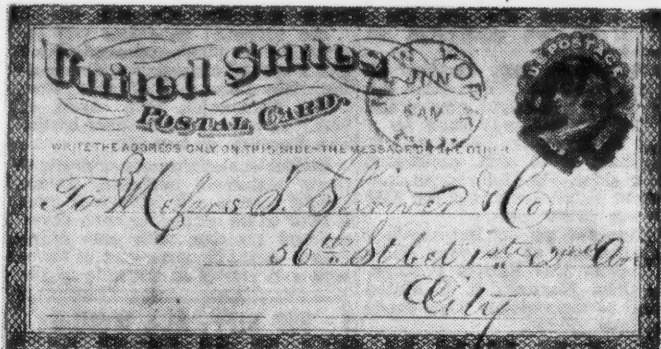 United States
POSTAL CARD.
NEW YORK
JUN
6 AM
U.S. POSTAGE
WRITE THE ADDRESS ONLY ON THIS SIDE—THE MESSAGE ON THE OTHER
To Messrs T. Shriver & Co
56th St bet 1st & 2nd Av
City